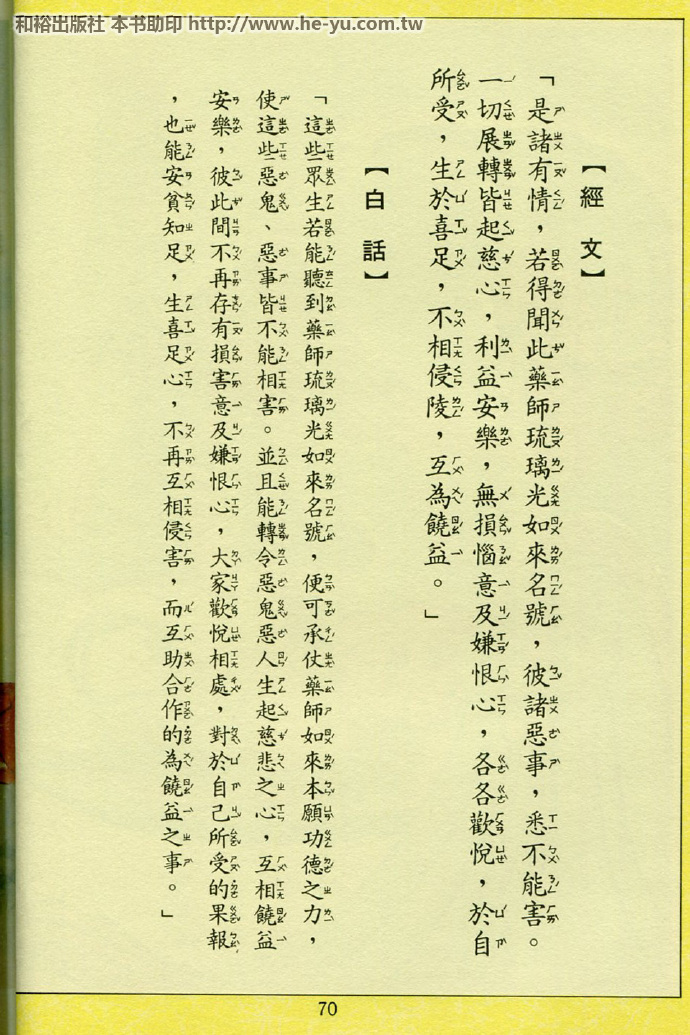 和裕出版社 本书助印 http://www.he-yu.com.tw
【經文】
「是諸有情，若得聞此藥師琉璃光如來名號，彼諸惡事，悉不能害。
一切展轉皆起慈心，利益安樂，無損惱意及嫌恨心，各各歡悅，於自
所受，生於喜足，不相侵陵，互為饒益。」
【白話】
「這些眾生若能聽到藥師琉璃光如來名號，便可承仗藥師如來本願功德之力，
使這些惡鬼、惡事皆不能相害。並且能轉令惡鬼惡人生起慈悲之心，互相饒益
安樂，彼此間不再存有損害意及嫌恨心，大家歡悅相處，對於自己所受的果報
，也能安貧知足，生喜足心，不再互相侵害，而互助合作的為饒益之事。」
70